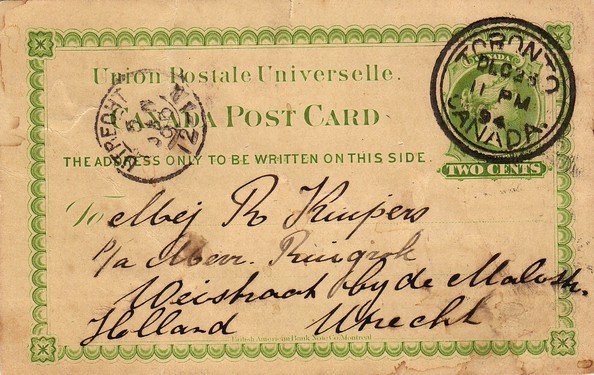 Union Postale Universelle.
CANADA POST CARD
THE ADDRESS ONLY TO BE WRITTEN ON THIS SIDE.
TORONTO
DEC 23
11 PM
94
CANADA
TWO CENTS
UTRECHT
To Mej R. Kuipers
p/a Mevr. Ringrok
Weistraat by de Maliestr.
Holland Utrecht
British American Bank Note Co. Montreal